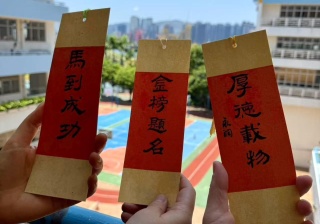 馬到成功
金榜題名
厚德載物